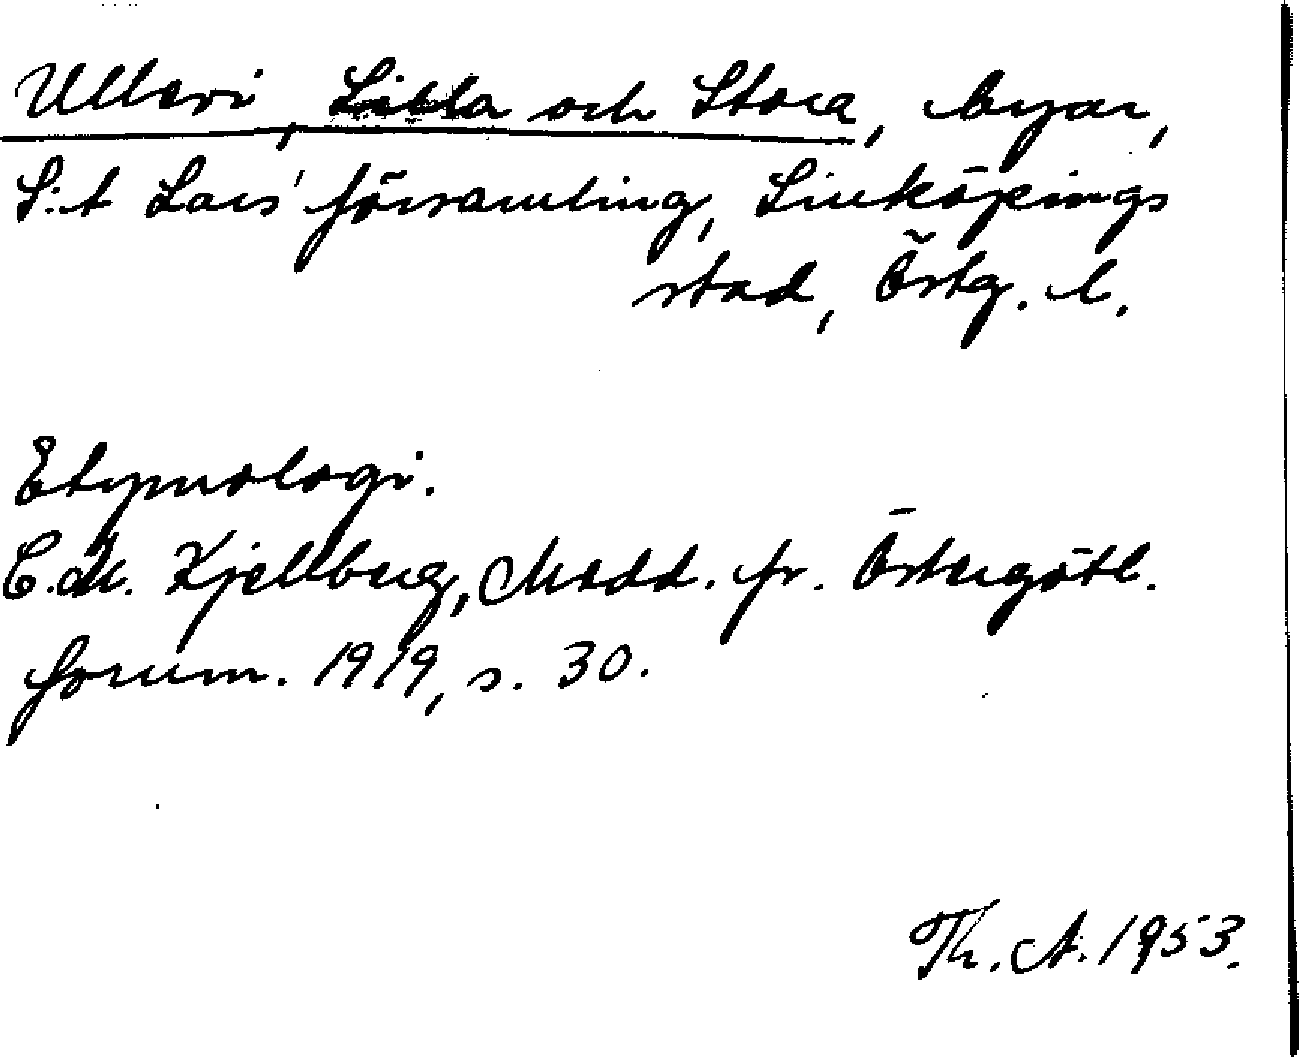 Ullevi, Lilla och Stora, byar,
S:t Lars' församling, Linköpings
stad, Östg. l.
Etymologi.
C.M. Kjellberg, Medd. fr. Östergötl.
fornm. 1919, s. 30.
Th. A. 1953.